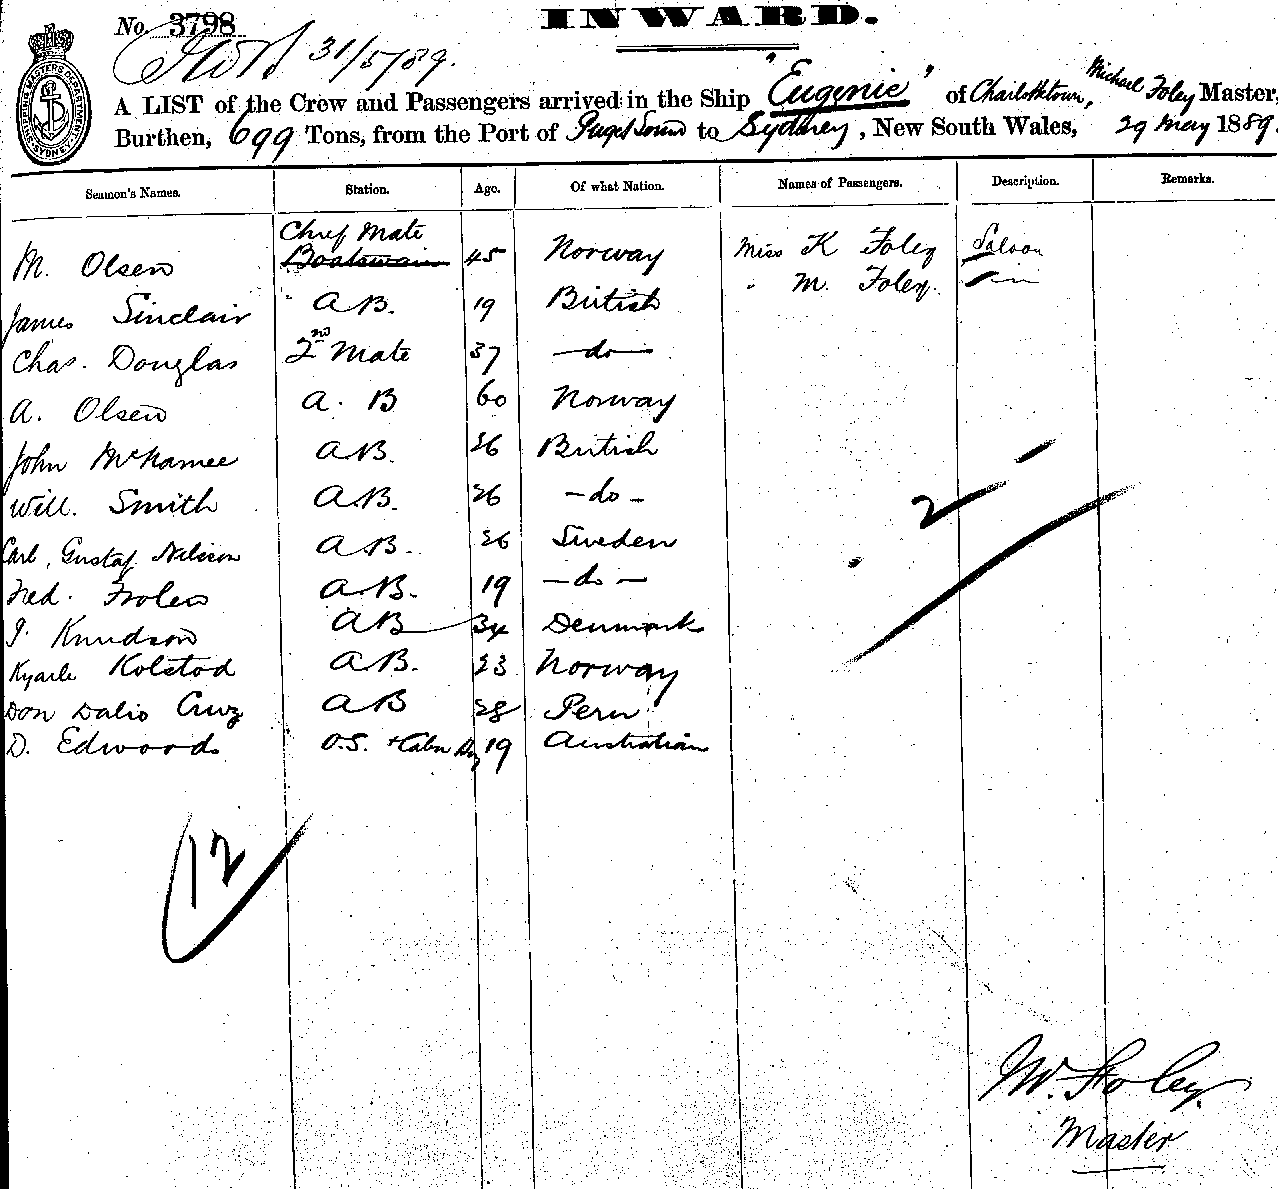 INWARD.
No. 3798
31/5/89.
A LIST of the Crew and Passengers arrived in the Ship "Eugenie" of Charlottetown, Michael Foley Master,
Burthen, 699 Tons, from the Port of Puget Sound to Sydney, New South Wales, 29 May 1889.
SHIPPING MASTER'S DEPARTMENT SYDNEY
Seamen's Names. Station. Age. Of what Nation. Names of Passengers. Description. Remarks.
M. Olsen Chief Mate Boatswain 45 Norway Miss K Foley Saloon
" M. Foley.
James Sinclair A B. 19 British
Chas. Douglas 2nd Mate 37 —do—
A. Olsen A. B 60 Norway
John McNamee A B. 26 British
Will. Smith A.B. 26 —do—
Carl, Gustaf Nelson A B. 26 Sweden
Fred. A B. 19 —do—
Knudson A B 34 Denmark
Kolstod A B. 23 Norway
Don Dalio Cruz A B 28 Peru
D. Edwoods O.S. + Cabn Boy 19 Australian
2
12
M. Foley.
Master